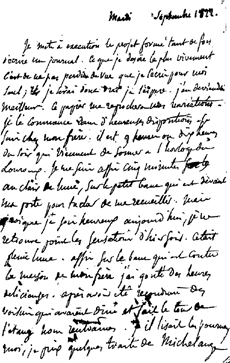 Mardi    Septembre 1822.
Je mets à exécution le projet formé tant de fois
d'écrire un journal. Ce que je désire le plus vivement
c'est de ne pas perdre de vue que je l'écris pour moi
seul; je serai donc vrai, je l'espère. j'en deviendrai
meilleur. Ce papier me reprochera mes variations.
Je le commence dans d'heureuses dispositions. Je
suis chez mon frère. il est 9 heures ou dix heures
du soir qui viennent de sonner à l'horloge du
Louroux. Je me suis assis cinq minutes
au clair de lune, sur le petit banc qui est devant
ma porte pour tâcher de me recueillir. mais
quoique je sois heureux aujourd'hui, je ne
retrouve point les sensations d'hier soir. C'était
pleine lune. assis sur le banc qui est contre
la maison de mon frère j'ai goûté des heures
délicieuses. après avoir été reconduire des
voisins qui avaient dîné et fait le tour de
l'étang nous rentrâmes. il lisait les journaux
moi, je pris quelques traits de Michelange